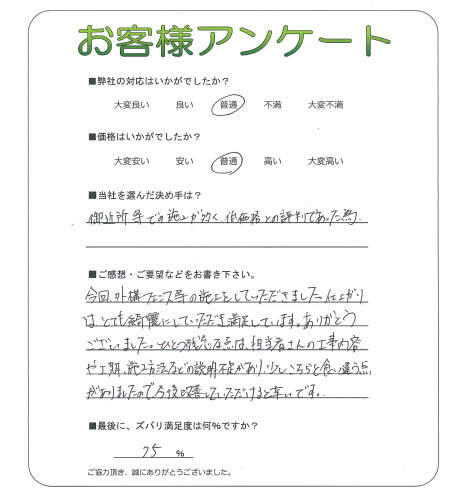 お客様アンケート
■弊社の対応はいかがでしたか？
大変良い 良い 普通 不満 大変不満
■価格はいかがでしたか？
大変安い 安い 普通 高い 大変高い
■当社を選んだ決め手は？
御近所等での施工が多く、低価格との評判であった為。
■ご感想・ご要望などをお書き下さい。
今回、外構フェンス等の施工をしていただきました。仕上がり
はとても綺麗にしていただき満足しています。ありがとう
ございました。ひとつ残念な点は、担当者さんの工事内容
や工期、施工方法などの説明不足があり、少しこちらと食い違う点
がありましたので、今後改善していただけると幸いです。
■最後に、ズバリ満足度は何％ですか？
75 ％
ご協力頂き、誠にありがとうございました。